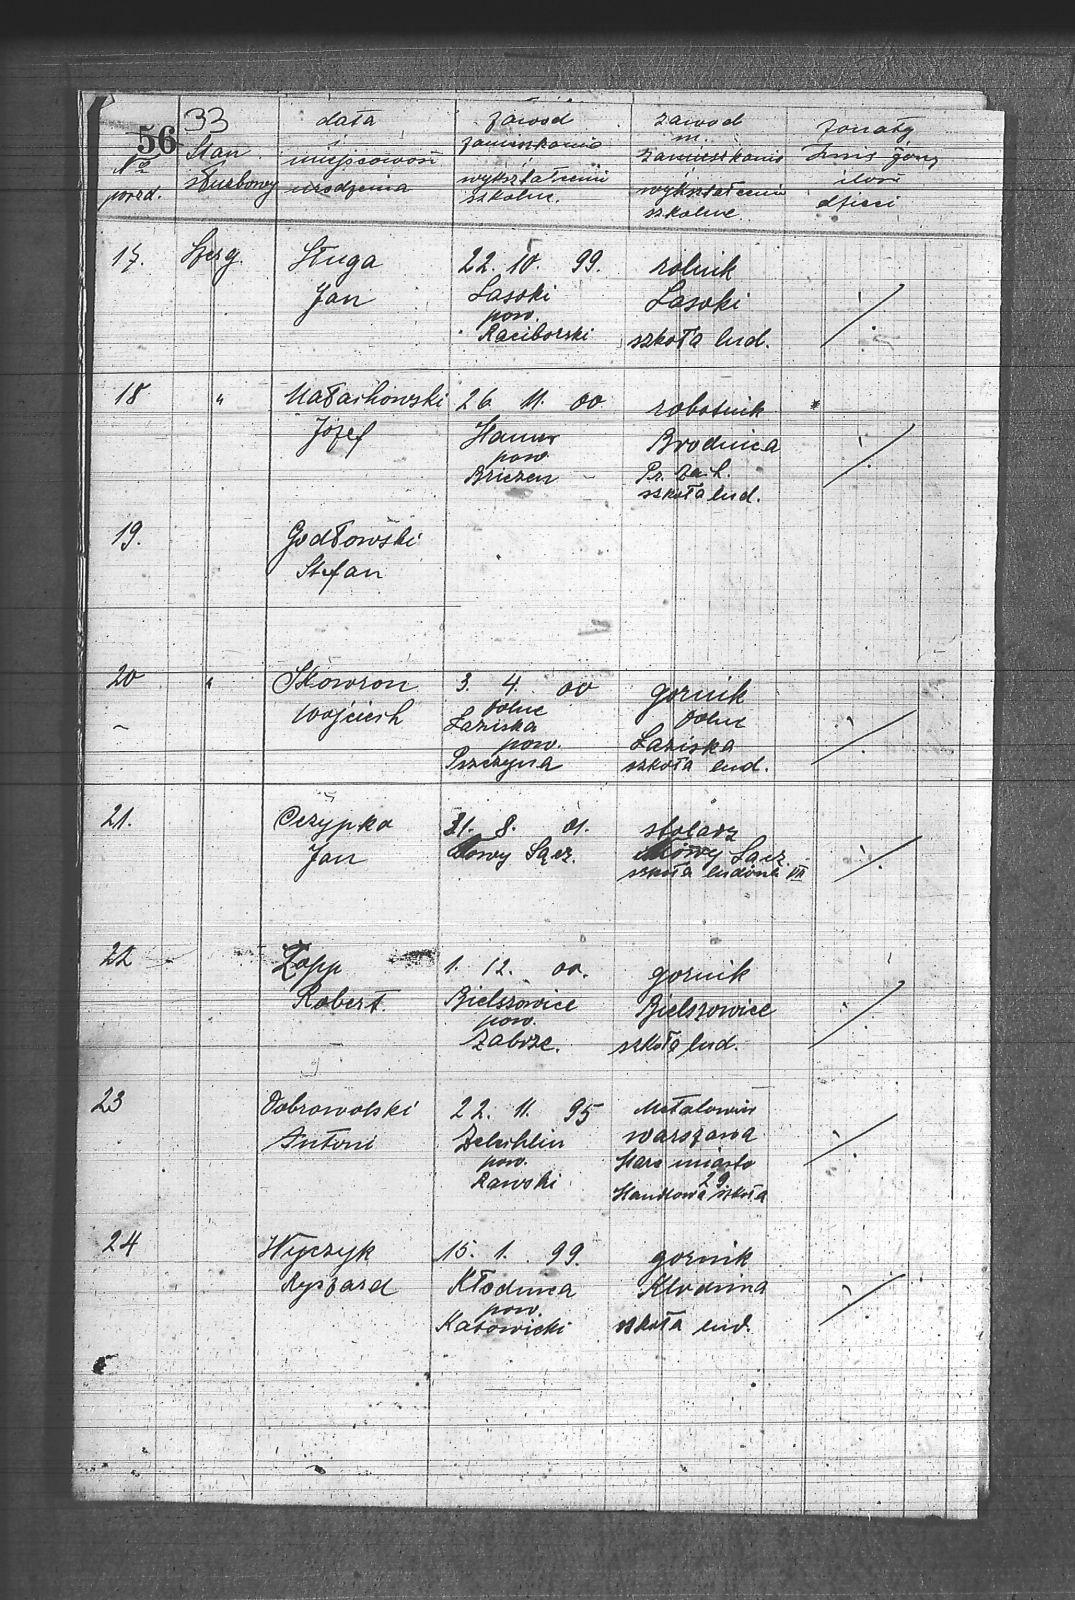 56 33
No
porząd.
Stan
służbowy
data
i
miejscowość
urodzenia
zawód
zamieszkania
wykształcenia
szkolne.
zawód
m.
zamieszkania
i
wykształcenia
szkolne
żonaty
Imię żony
ilość
dzieci
17. Szerg. Sługa 22. 10. 99. rolnik
Jan Lasoki Lasoki
pow.
Raciborski szkoła lud.
18 " Małachowski 26 11. 00 robotnik
Józef Brodnica
pow. Pr. Zach.
Briezen szkoła lud.
19. Godłowski
Stefan
20 " Skowron 3. 4. 00 gornik
Wojciech dolne dolne
Łaziska Łaziska
pow.
Pszczyna szkoła lud.
21. Czypka 31. 8. 01. stolarz
Jan Nowy Sącz. Nowy Sącz.
szkoła ludowa VII
22 Zopp 1. 12. 00. gornik
Robert. Bielszowice Bielszowice
pow.
Zabrze. szkoła lud.
23 Dobrowolski 22. 11. 95 Metalowiec
Antoni Zelechlin Warszawa
pow. Stare miasto
Rawski 29
Handlowa szkoła
24 Wyczyk 15. 1. 99. gornik
Ryszard Kłodnica Klodnica
pow.
Katowicki szkoła lud.